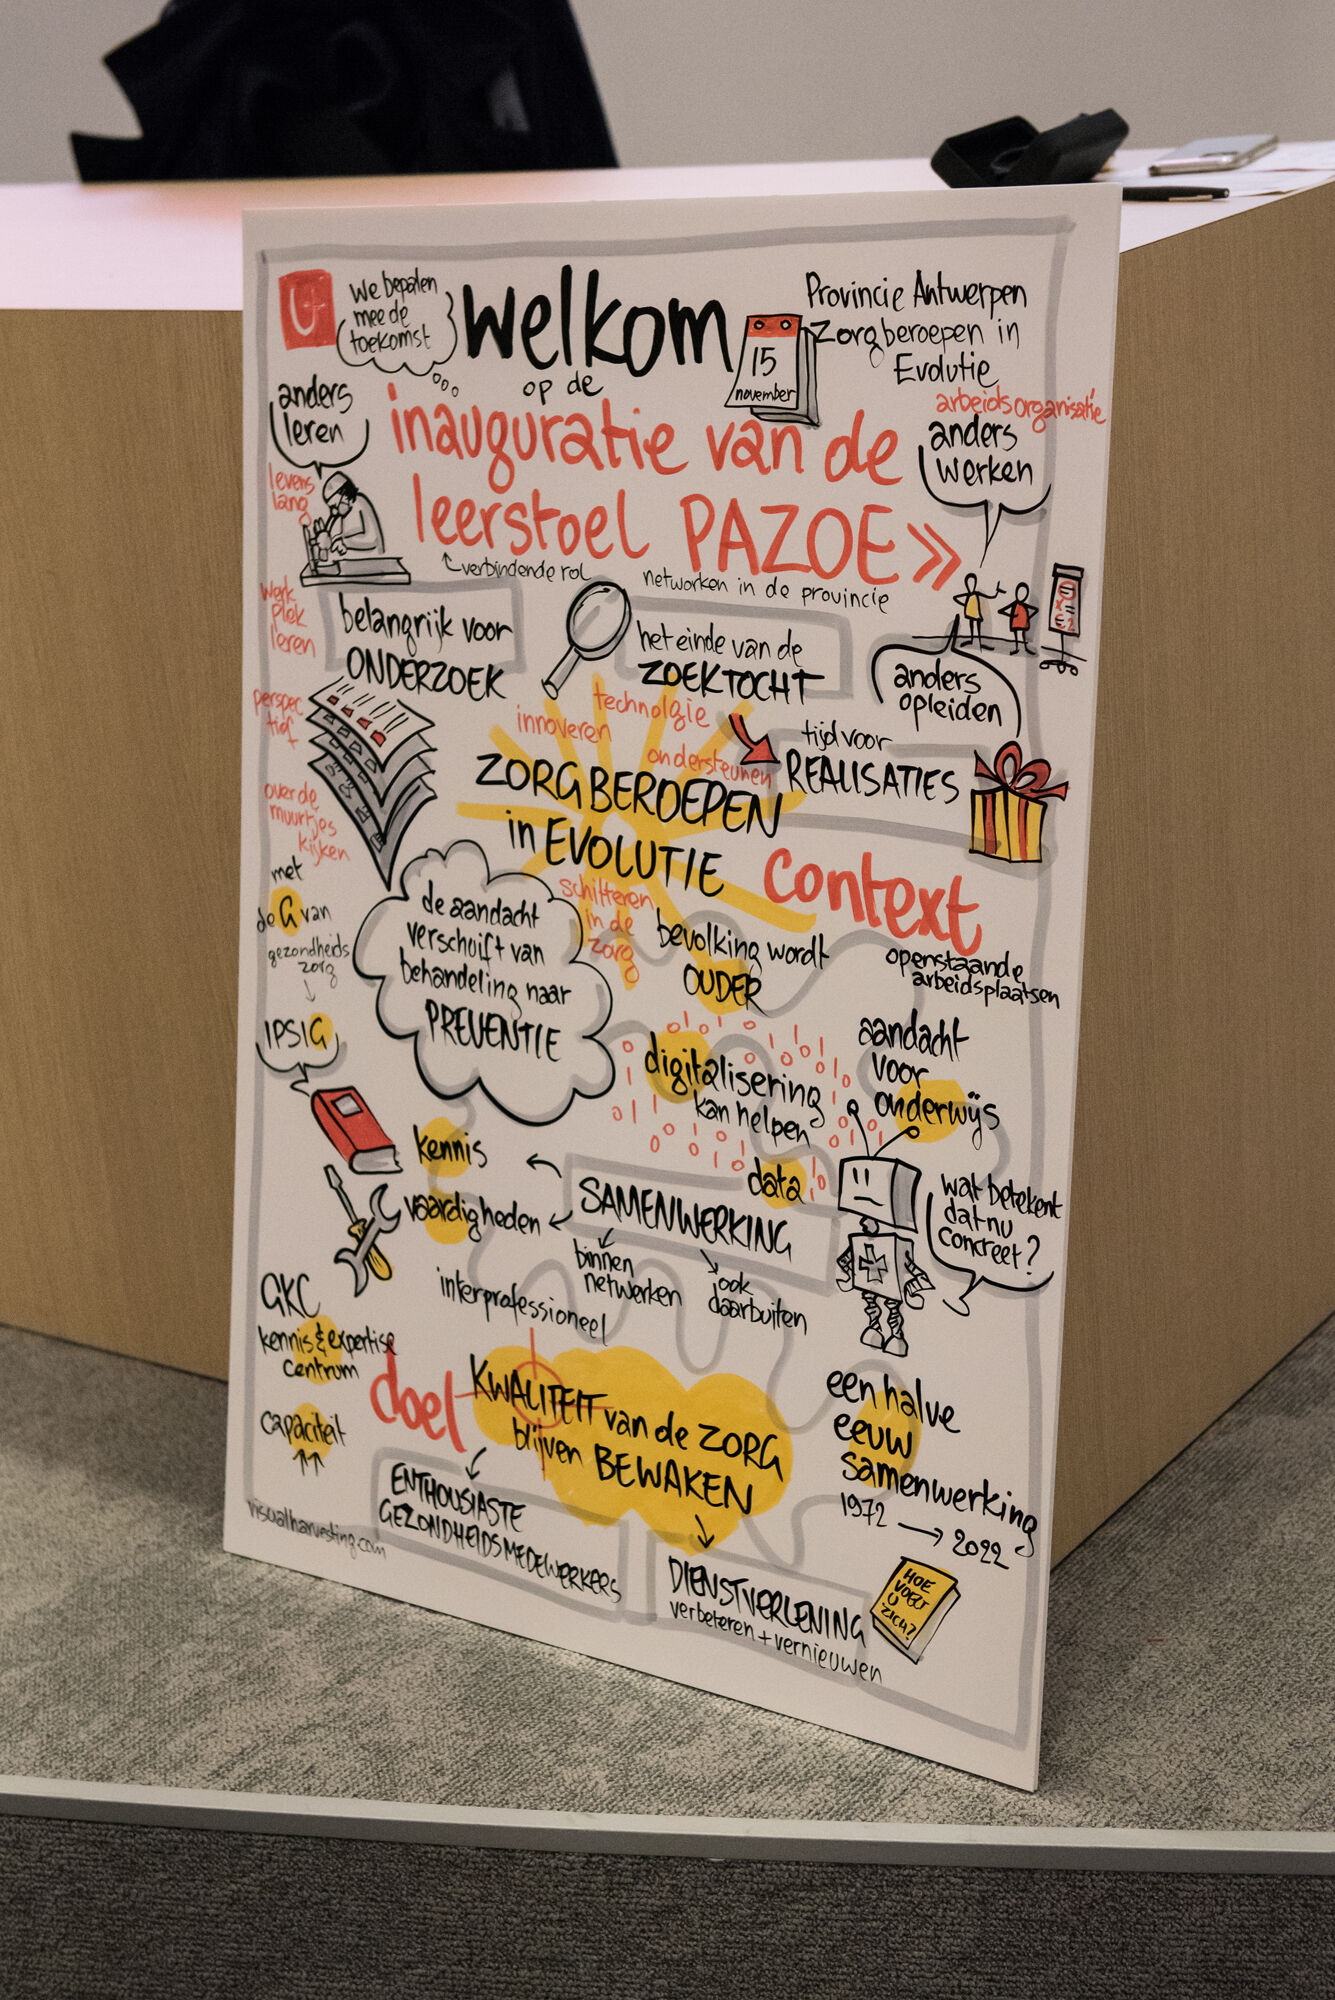 We bepalen
mee de
toekomst
welkom
op de
15
november
Provincie Antwerpen
Zorgberoepen in
Evolutie
inauguratie van de
leerstoel PAZOE »
verbindende rol
netwerken in de provincie
anders
leren
levens
lang
werk
plek
leren
perspec
tief
over de
muurtjes
kijken
arbeidsorganisatie
anders
werken
anders
opleiden
belangrijk voor
ONDERZOEK
het einde van de
ZOEKTOCHT
tijd voor
REALISATIES
innoveren
technolgie
ondersteunen
ZORGBEROEPEN
in EVOLUTIE
schitteren
in de
zorg
context
met
de G van
gezondheids
zorg
IPSIG
de aandacht
verschuift van
behandeling naar
PREVENTIE
bevolking wordt
OUDER
openstaande
arbeidsplaatsen
digitalisering
kan helpen
data
aandacht
voor
onderwijs
wat betekent
dat nu
concreet?
kennis
vaardigheden
SAMENWERKING
binnen
netwerken
ook
daarbuiten
interprofessioneel
GKC
kennis & expertise
centrum
capaciteit
doel
KWALITEIT van de ZORG
blijven BEWAKEN
ENTHOUSIASTE
GEZONDHEIDSMEDEWERKERS
DIENSTVERLENING
verbeteren + vernieuwen
een halve
eeuw
samenwerking
1972 → 2022
HOE
VOELT
U
ZICH?
visualharvesting.com